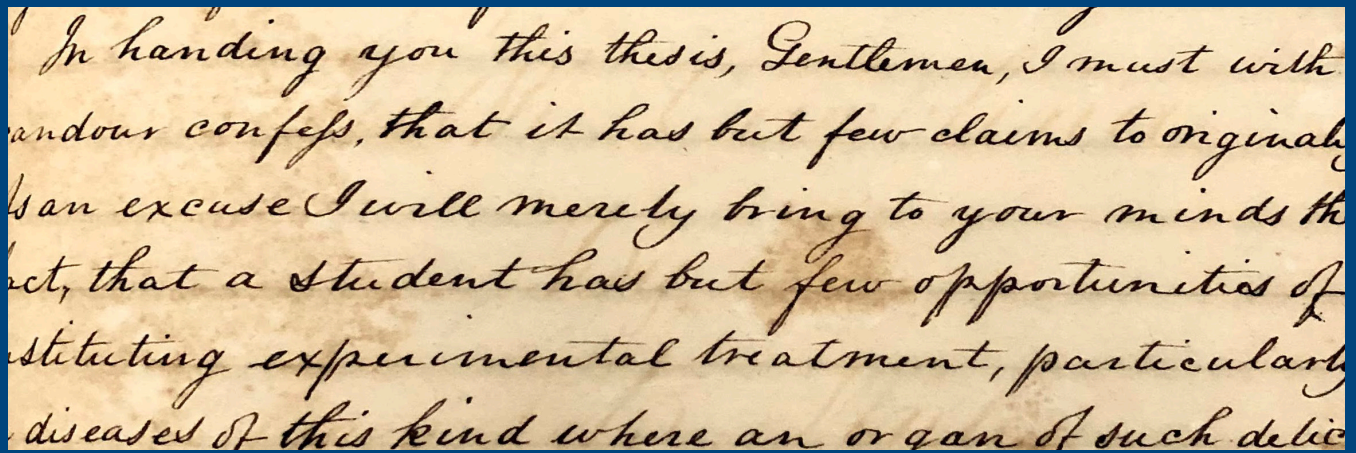 In handing you this thesis, Gentlemen, I must with
andour confess, that it has but few claims to originali
As an excuse I will merely bring to your minds th
act, that a student has but few opportunities of
stituting experimental treatment, particularly
diseases of this kind where an organ of such delic